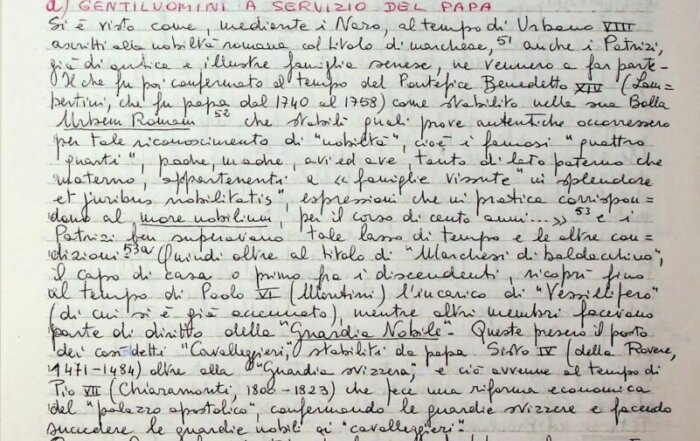 a) GENTILUOMINI A SERVIZIO DEL PAPA
Si è visto come, mediante i Naro, al tempo di Urbano VIII
ascritti alla nobiltà romana col titolo di marchese, 51 anche i Patrizi,
già di antica e illustre famiglia senese, ne vennero a far parte-
Il che fu poi confermato al tempo del Pontefice Benedetto XIV (Lam=
bertini, che fu papa dal 1740 al 1758) come stabilito nella sua Bolla
Urbem Romam 52 che stabilì quali prove autentiche occorressero
per tale riconoscimento di "nobiltà", cioè i famosi "quattro
quarti", padre, madre, avi ed ave, tanto di lato paterno che
materno, appartenenti a «famiglie vissute "in splendore
et juribus nobilitatis", espressioni che in pratica corrispon=
dono al more nobilium, per il corso di cento anni...» 53 e i
Patrizi ben superavano tale lasso di tempo e le altre con=
dizioni. 53a Quindi oltre al titolo di "Marchesi di baldacchino",
il capo di casa o primo fra i discendenti, ricoprì fino
al tempo di Paolo VI (Montini) l'incarico di "Vessillifero"
(di cui si è già accennato), mentre altri membri facevano
parte di diritto della "Guardia Nobile"- Queste presero il posto
dei così detti "Cavalleggieri", stabiliti da papa Sisto IV (della Rovere,
1471-1484) oltre alla "Guardia svizzera", e ciò avvenne al tempo di
Pio VII (Chiaramonti, 1800-1823) che fece una riforma economica
del "palazzo apostolico", confermando le guardie svizzere e facendo
succedere le guardie nobili ai "cavalleggieri".